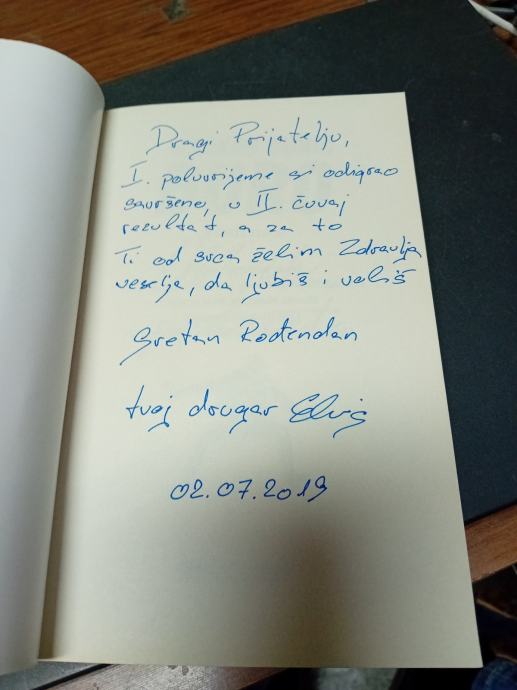 Dragi Prijatelju,
I. poluvrijeme si odigrao
savršeno, u II. čuvaj
rezultat, a za to
Ti od srca želim Zdravlja
veselja, da ljubiš i voliš
Sretan Rođendan
tvoj drugar Elvis
02.07.2019